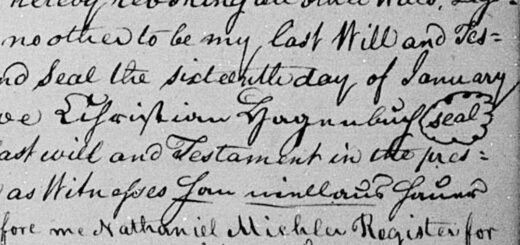 hereby revoking all other Wills, Leg=
no other to be my last Will and Tes=
nd Seal the sixteenth day of January
Christian Hagenbuch seal
last will and Testament in the pres=
as Witnesses
fore me Nathaniel Michler Register for